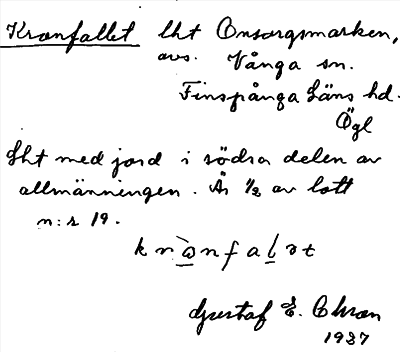 Kranfallet lht Onsorgsmarken,
avs. Vånga sn.
Finspånga Läns hd.
Ögl
Lht med jord i södra delen av
allmänningen. Är 1/2 av lott
n:r 19.
Gustaf E. Ohson
1937